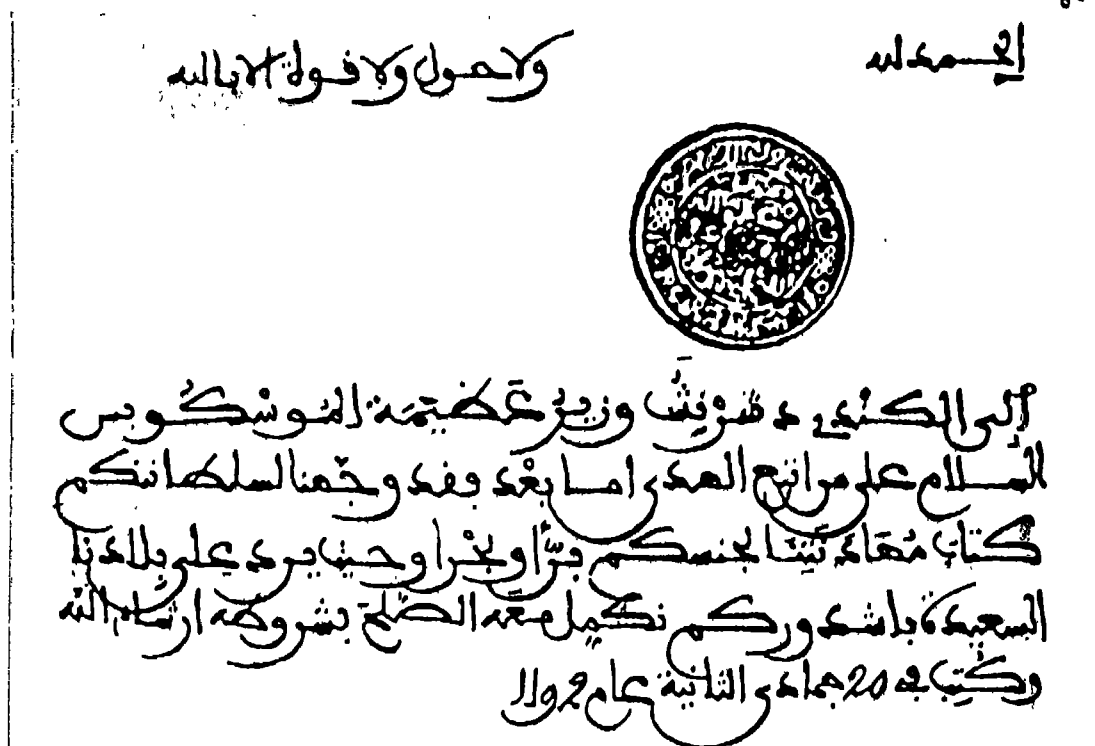 الحمد لله ولا حول ولا قوة الا بالله
إلى الكُنْدِ د وزير عَظيمَة المُوسْكُوبِس
السلام على من اتبع الهدى اما بعْد فقد وجّهنا لسلطانتكم
كتاب مُهَادَنَتِنَا لجنسكم برًّا وبحْرا وحين يرد على بِلادنا
السعيدة باشدوركم نكمِل معَه الصّلحَ بشروطه ان شاء الله
وكُتِبَ في 20 جمادى الثانية عام 1192